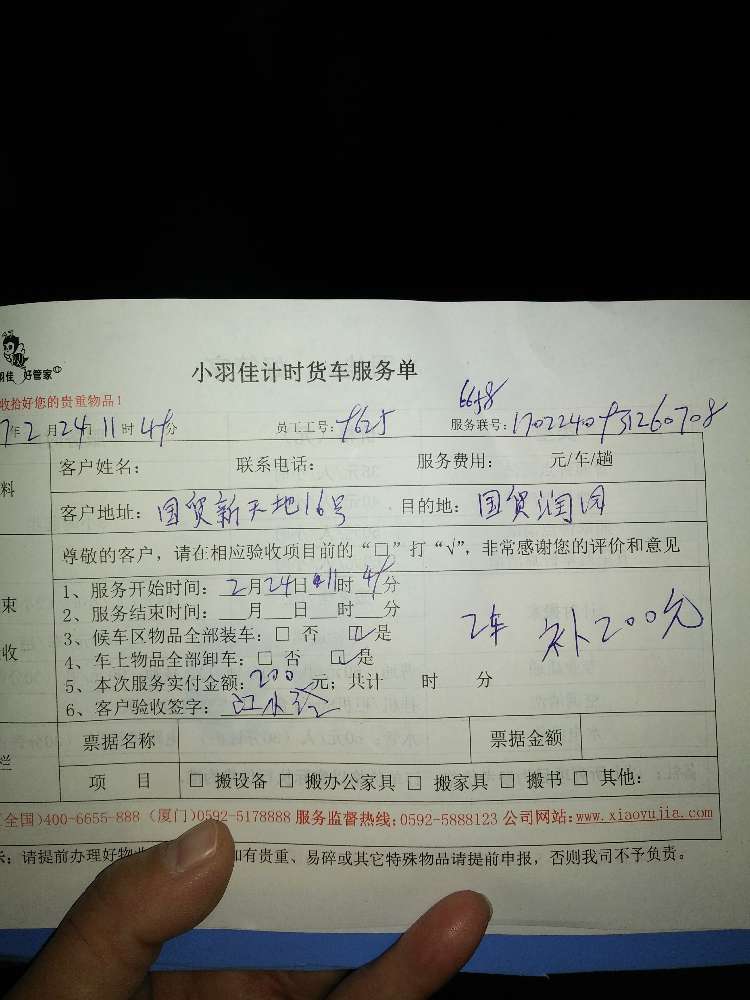 羽佳 好管家
小羽佳计时货车服务单
收拾好您的贵重物品！
6658
7年2月24日11时45分 员工工号：9625 服务联号：
料
客户姓名： 联系电话： 服务费用： 元/车/趟
客户地址：国贸新天地16号 目的地：国贸润园
尊敬的客户，请在相应验收项目前的“□”打“√”，非常感谢您的评价和意见
束
收
1、服务开始时间：2月24日11时45分
2、服务结束时间：__月__日__时__分
3、候车区物品全部装车：□ 否 ☑ 是
2车 补200元
4、车上物品全部卸车：□ 否 ☑ 是
5、本次服务实付金额：200元；共计 时 分
6、客户验收签字：
栏
票据名称 票据金额
项 目 □ 搬设备 □ 搬办公家具 □ 搬家具 □ 搬书 □ 其他：
(全国)400-6655-888 (厦门)0592-5178888 服务监督热线：0592-5888123 公司网站：www.xiaoyujia.com
示：请提前办理好物 如有贵重、易碎或其它特殊物品请提前申报，否则我司不予负责。